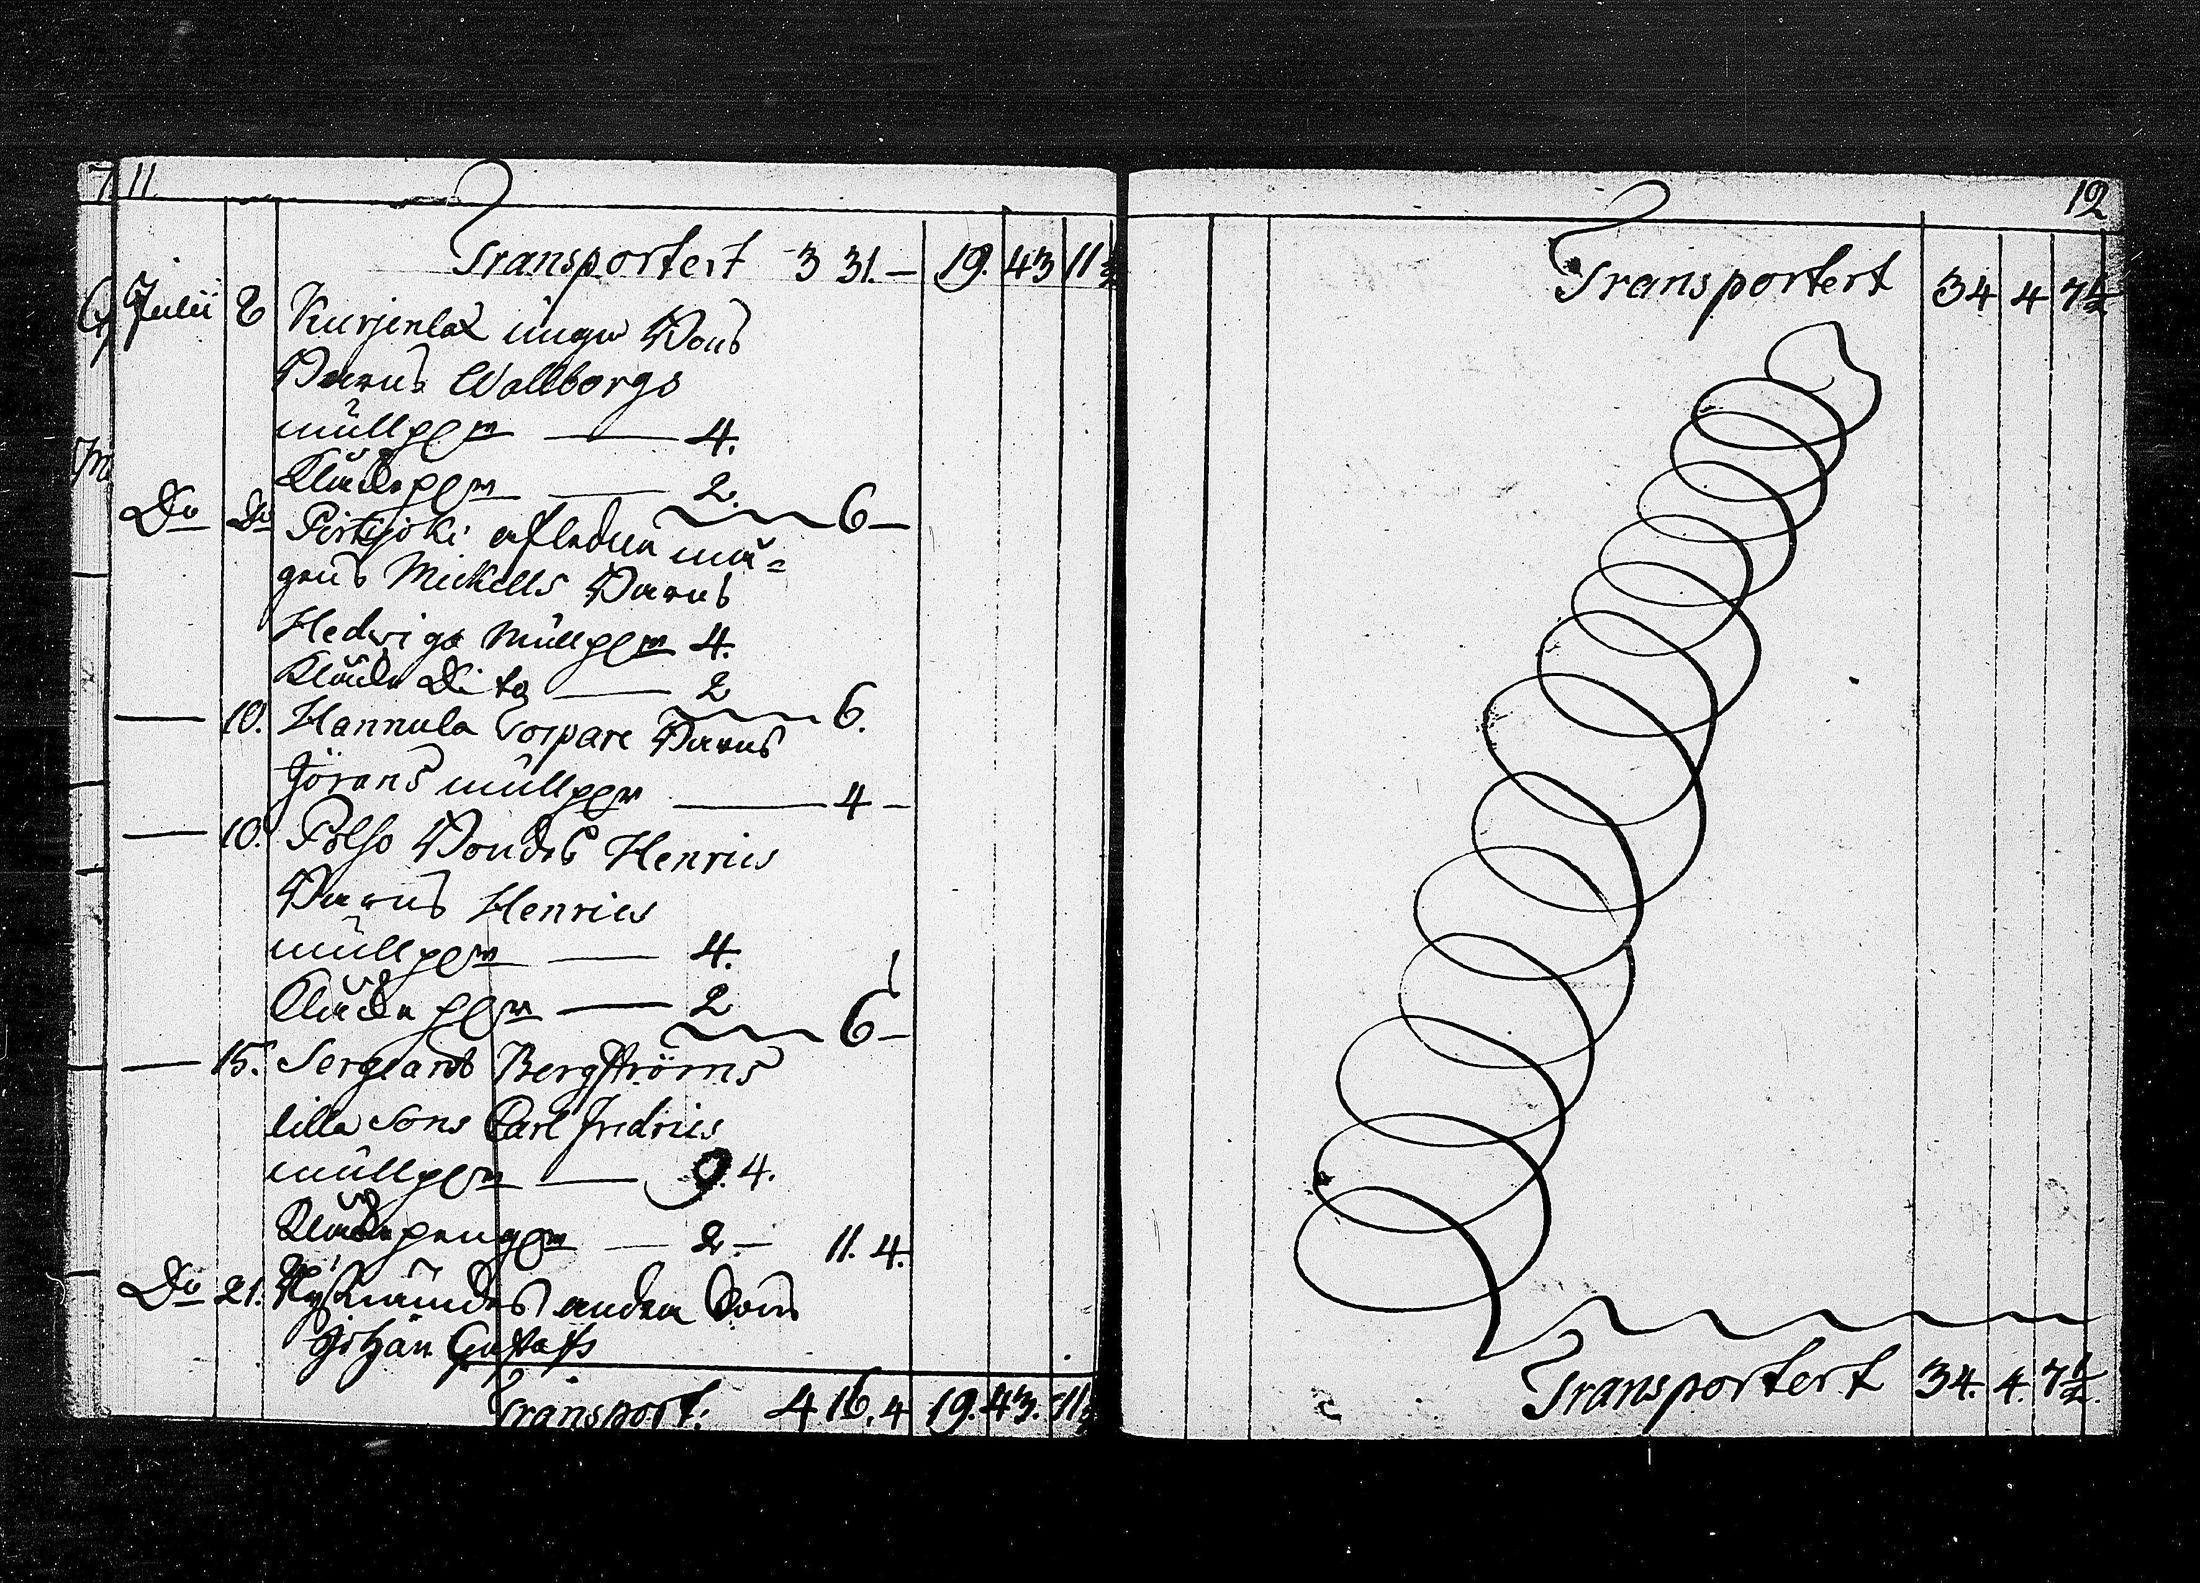 11
Transportert 3 31.— 19. 43 11½
Julii 8 Kurjenlax unga Sons
Barns Wallborgs
mullpgr — 4.
Klåckpgr — 2. 6—
Do Do Pirtijoki afledne må=
gens Mickells Barns
Hedwigs Mullpgr 4.
Klåck Dito — 2 6.
— 10. Hannula Corpare Barns
Jörans mullpgr — 4—
— 10. Pålso Bondes Henrics
Barns Henrics
mullpgr — 4.
Klåck pgr — 2 6—
— 15. Sergeant Bergströms
lilla Sons Carl Fredrics
mullpgr — 9. 4.
Klåckpengar — 2.— 11. 4.
Do 21. andra Sons
Johan Gustafs
Transport: 4 16. 4 19. 43. 11½
12
Transportert 34 4 7½
Transportert 34. 4. 7½.